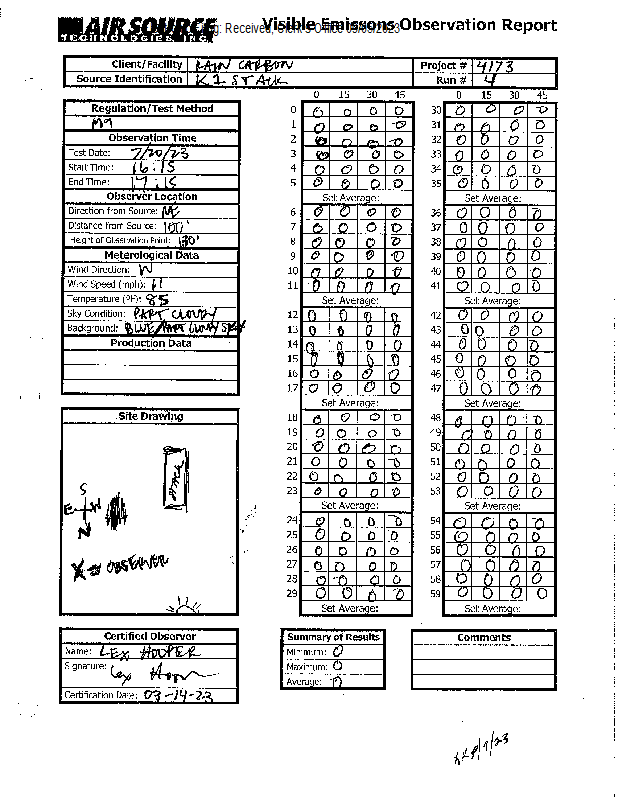 AIR SOURCE TECHNOLOGIES INC
Received, Clerk's Office 09/08/2023
Visible Emissons Observation Report
Client/Facility RAIN CARBON
Source Identification K1 STACK
Project # 4173
Run # 4
Regulation/Test Method
M9
Observation Time
Test Date: 7/20/23
Start Time: 16:15
End Time: 17:15
Observer Location
Direction from Source: NE
Distance from Source: 100'
Height of Observation Point: 130'
Meterological Data
Wind Direction: W
Wind Speed (mph): 11
Temperature (ºF): 85
Sky Condition: PART CLOUDY
Background: BLUE/PART CLOUDY SKY
Production Data
Site Drawing
STACK
S
E W
N
X = OBSERVER
0 15 30 45
0 0 0 0 0
1 0 0 0 0
2 0 0 0 0
3 0 0 0 0
4 0 0 0 0
5 0 0 0 0
Set Average:
6 0 0 0 0
7 0 0 0 0
8 0 0 0 0
9 0 0 0 0
10 0 0 0 0
11 0 0 0 0
Set Average:
12 0 0 0 0
13 0 0 0 0
14 0 0 0 0
15 0 0 0 0
16 0 0 0 0
17 0 0 0 0
Set Average:
18 0 0 0 0
19 0 0 0 0
20 0 0 0 0
21 0 0 0 0
22 0 0 0 0
23 0 0 0 0
Set Average:
24 0 0 0 0
25 0 0 0 0
26 0 0 0 0
27 0 0 0 0
28 0 0 0 0
29 0 0 0 0
Set Average:
0 15 30 45
30 0 0 0 0
31 0 0 0 0
32 0 0 0 0
33 0 0 0 0
34 0 0 0 0
35 0 0 0 0
Set Average:
36 0 0 0 0
37 0 0 0 0
38 0 0 0 0
39 0 0 0 0
40 0 0 0 0
41 0 0 0 0
Set Average:
42 0 0 0 0
43 0 0 0 0
44 0 0 0 0
45 0 0 0 0
46 0 0 0 0
47 0 0 0 0
Set Average:
48 0 0 0 0
49 0 0 0 0
50 0 0 0 0
51 0 0 0 0
52 0 0 0 0
53 0 0 0 0
Set Average:
54 0 0 0 0
55 0 0 0 0
56 0 0 0 0
57 0 0 0 0
58 0 0 0 0
59 0 0 0 0
Set Average:
Certified Observer
Name: LEX HOOPER
Signature: Lex
Certification Date: 03-14-23
Summary of Results
Minimum: 0
Maximum: 0
Average: 0
Comments